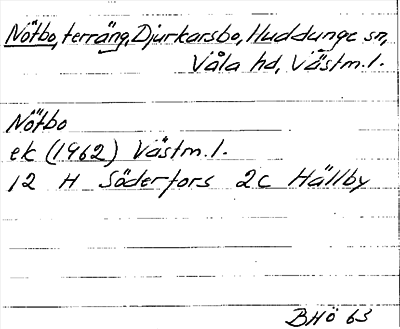 Nötbo, terräng, Djurkarsbo, Huddunge sn,
Våla hd, Västm.l.
Nötbo
ek (1962) Västm.l.
12 H Söderfors 2c Hällby
BHÖ 63